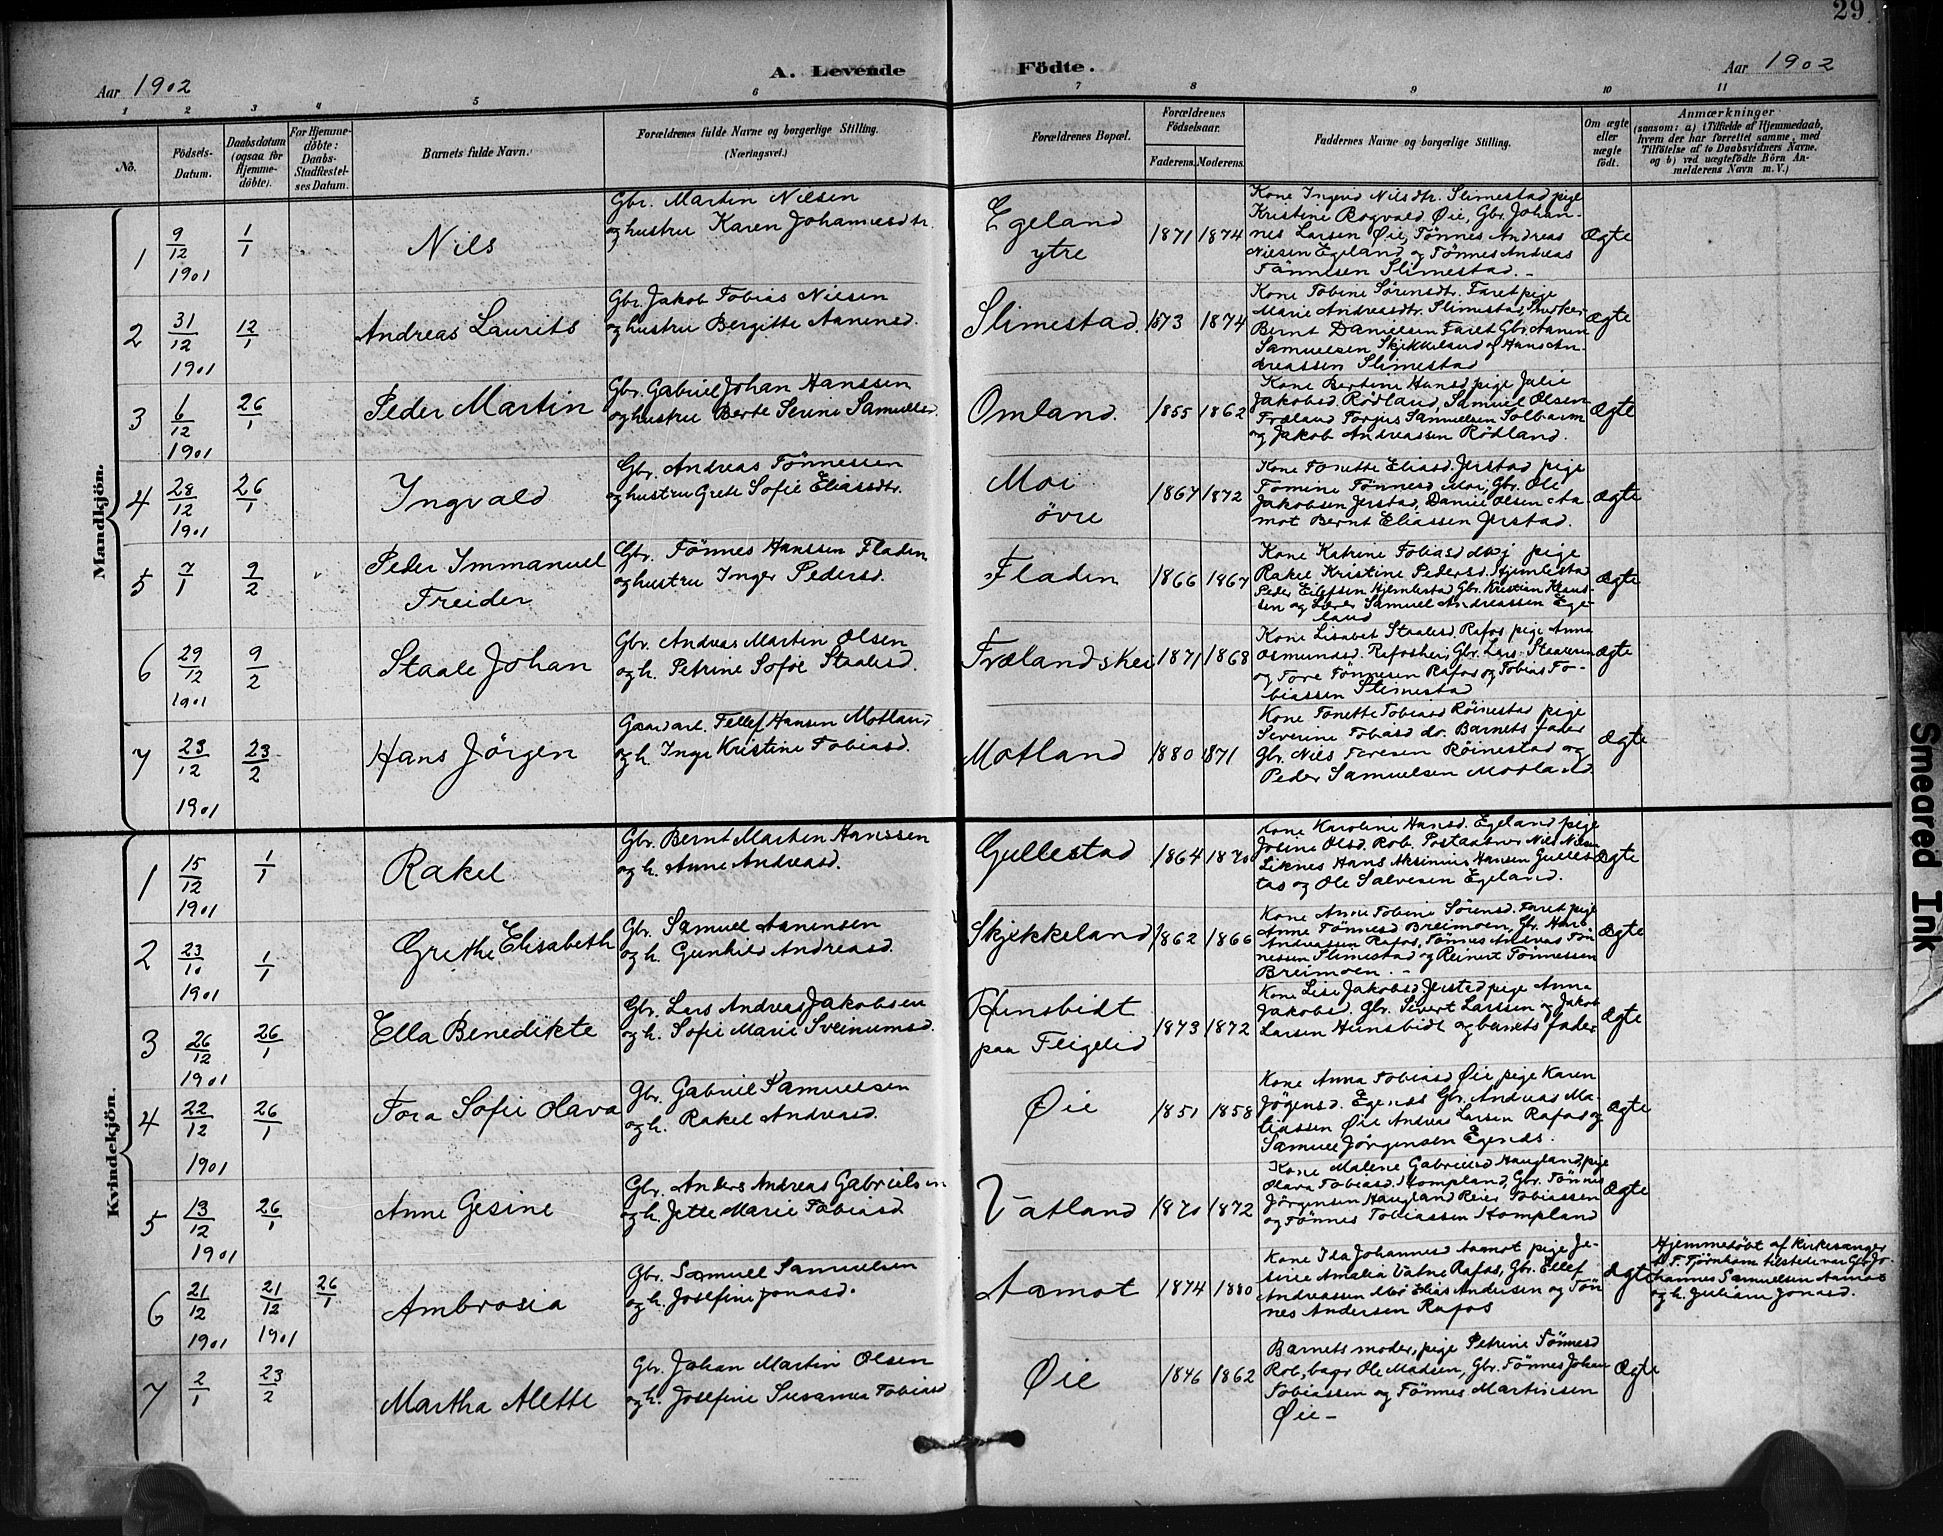 29.
Aar 1902
A. Levende Födte.
Aar 1902
1 2 3 4 5 6 7 8 9 10 11
No.
Födsels-
Datum.
Daabsdatum
(ogsaa for
Hjemme-
döbte).
For Hjemme-
döbte:
Daabs-
Stadfæstel-
ses Datum.
Barnets fulde Navn.
Forældrenes fulde Navne og borgerlige Stilling.
(Næringsvei.)
Forældrenes Bopæl.
Forældrenes
Födselsaar.
Faderens. Moderens.
Faddernes Navne og borgerlige Stilling.
Om ægte
eller
uægte
födt.
Anmærkninger
(saasom: a) i Tilfælde af Hjemmedaab,
hvem der har forrettet samme, med
Tilföielse af to Daabsvidners Navne.
og b) ved uægtefödte Börn An-
melderens Navn m. V.)
Mandkjön.
1
9/12 1901
1/1
Nils
Gbr. Martin Nilsen
og hustru Karen Johannesdtr
Egeland
ytre
1871 1874
Kone Ingrid Nilsdtr. Slimestad pige
Kristine Rogvald Øie, Gbr. Johan-
nes Larsen Øie, Tönnes Andreas
Nielsen Egeland og Tönnes Andreas
Tönnesen Slimestad.-
Ægte
2
31/12 1901
12/1
Andreas Laurits
Gbr. Jakob Tobias Nilsen
og hustru Bergitte Aanensd.
Slimestad.
1873 1874
Kone Tobine Sörensdtr. Faret pige
Marie Andreasdtr. Slimestad,
Bernt Danielsen Faret Gbr. Aanen
Samuelsen Skjekkeland og Hans An-
dreassen Slimestad
Ægte
3
6/12 1901
26/1
Peder Martin
Gbr. Gabriel Johan Hanssen
og hustru Berte Serine Samuelsd.
Omland.
1855 1862
Kone Bertine Hansd. pige Julie
Jakobsd. Rödland, Samuel Olsen
Fræland Torjus Samuelsen Solbaum
og Jakob Andreassen Rödland.
Ægte
4
28/12 1901
26/1
Ingvald
Gbr. Andreas Tönnessen
og hustru Grete Sofie Eliasdtr.
Moi
övre
1867 1872
Kone Tonette Eliasd. Jerstad pige
Tomine Tönnesd. Moi, Gbr. Ole
Jakobsen Jerstad, Daniel Olsen Aa-
mot Bernt Eliassen Jerstad.
Ægte
5
7/1
9/2
Peder Immanuel
Freider
Gbr. Tönnes Hanssen Fladen
og hustru Inger Pedersd.
Fladen
1866 1867
Kone Katrine Tobiasd. pige
Rakel Kristine Pedersd. Hjemlestad
Peder Eilefsen Hjemlestad Gbr. Kristian Klaus-
sen og Lærer Samuel Andreassen Ege-
land
Ægte
6
29/12 1901
9/2
Staale Johan
Gbr. Andreas Martin Olsen
og h. Petrine Sofie Staalesd.
Frælandskei
1871 1868
Kone Lisabet Staalesd. Rafos pige Anna
Osmundsd. Rafoskei, Gbr. Lars Staalesen
og Tore Tönnesen Rafos og Tobias To-
biassen Slimestad
Ægte
7
23/12 1901
23/2
Hans Jörgen
Gaardarb. Tellef Hansen Motland
og h. Inga Kristine Tobiasd.
Motland
1880 1871
Kone Tonette Tobiasd Röinestad pige
Severine Tobiasd do. Barnets fader
Gbr. Niels Teresen Röinestad og
Peder Samuelsen Motland
Ægte
Kvindekjön.
1
15/12 1901
1/1
Rakel
Gbr. Bernt Martin Hanssen
og h. Anne Andreasd.
Gullestad
1864 1870
Kone Karoline Hansd. Egeland pige
Joline Olsd. Rob. Postaabner Nils Nilsen
Liknes Hans Aksinius Hansen Gulles-
tad og Ole Salvesen Egeland.
Ægte
2
23/10 1901
1/1
Grethe Elisabeth
Gbr. Samuel Aanensen
og h. Gunhild Andreasd.
Skjekkeland
1862 1866
Kone Anne Tobine Sörensd. Faret pige
Anne Tönnesd Breimoen, Gbr. Hans
Andreassen Rafos, Tönnes Andreas Tön-
nessen Slimestad og Reinert Tönnessen
Breimoen. -
Ægte
3
26/12 1901
26/1
Ella Benedikte
Gbr. Lars Andreas Jakobsen
og h. Sofie Marie Sveinumsd.
Hunsbidt
paa Fligelid
1873 1872
Kone Lise Jakobsd Jerstad pige Anna
Jakobsd. Gbr. Sivert Larssen og Jakob
Larsen Hunsbidt og barnets fader
Ægte
4
22/12 1901
26/1
Tora Sofie Olava
Gbr. Gabriel Samuelsen
og h. Rakel Andreasd.
Øie
1851 1858
Kone Anna Tobiasd Øie pige Karen
Jörgensd. Egends Gbr. Andreas Ma-
tiassen Øie Andreas Larsen Rafos og
Samuel Jörgensen Egends.
Ægte
5
13/12 1901
26/1
Anne Gesine
Gbr. Anders Andreas Gabrielsen
og h. Jette Marie Tobiasd
Vatland
1870 1872
Kone Malene Gabrielsd Haugland, pige
Olava Tobiasd. Kompland, Gbr. Tönnes
Jörgensen Haugland Reier Tobiassen
og Tönnes Tobiassen Kompland
Ægte
6
21/12 1901
21/12 1901
26/1
Ambrosia
Gbr. Samuel Samuelsen
og h. Josefine Jonasd.
Aamot
1874 1880
Kone Ida Johannesd Aamot pige Je-
sine Amalia Vatne Rafos, Gbr. Ellef
Andreassen Moi Elias Andersen og Tön
nes Andersen Rafos
Ægte
Hjemmedöbt af kirkesanger
T. Tjörnhom tilstede var Gbr. Jo-
hannes Samuelsen Aamot
og h. Juliane Jonasd.
7
2/1
23/2
Martha Alette
Gbr. Johan Martin Olsen
og h. Josefine Susanna Tobiasd
Øie
1846 1862
Barnets moder, pige Petrine Tönnesd
Rob, bager Ole Madsen, Gbr. Tönnes Johan
Tobiassen og Tönnes Martinesen
Øie -
Ægte
Smeared Ink